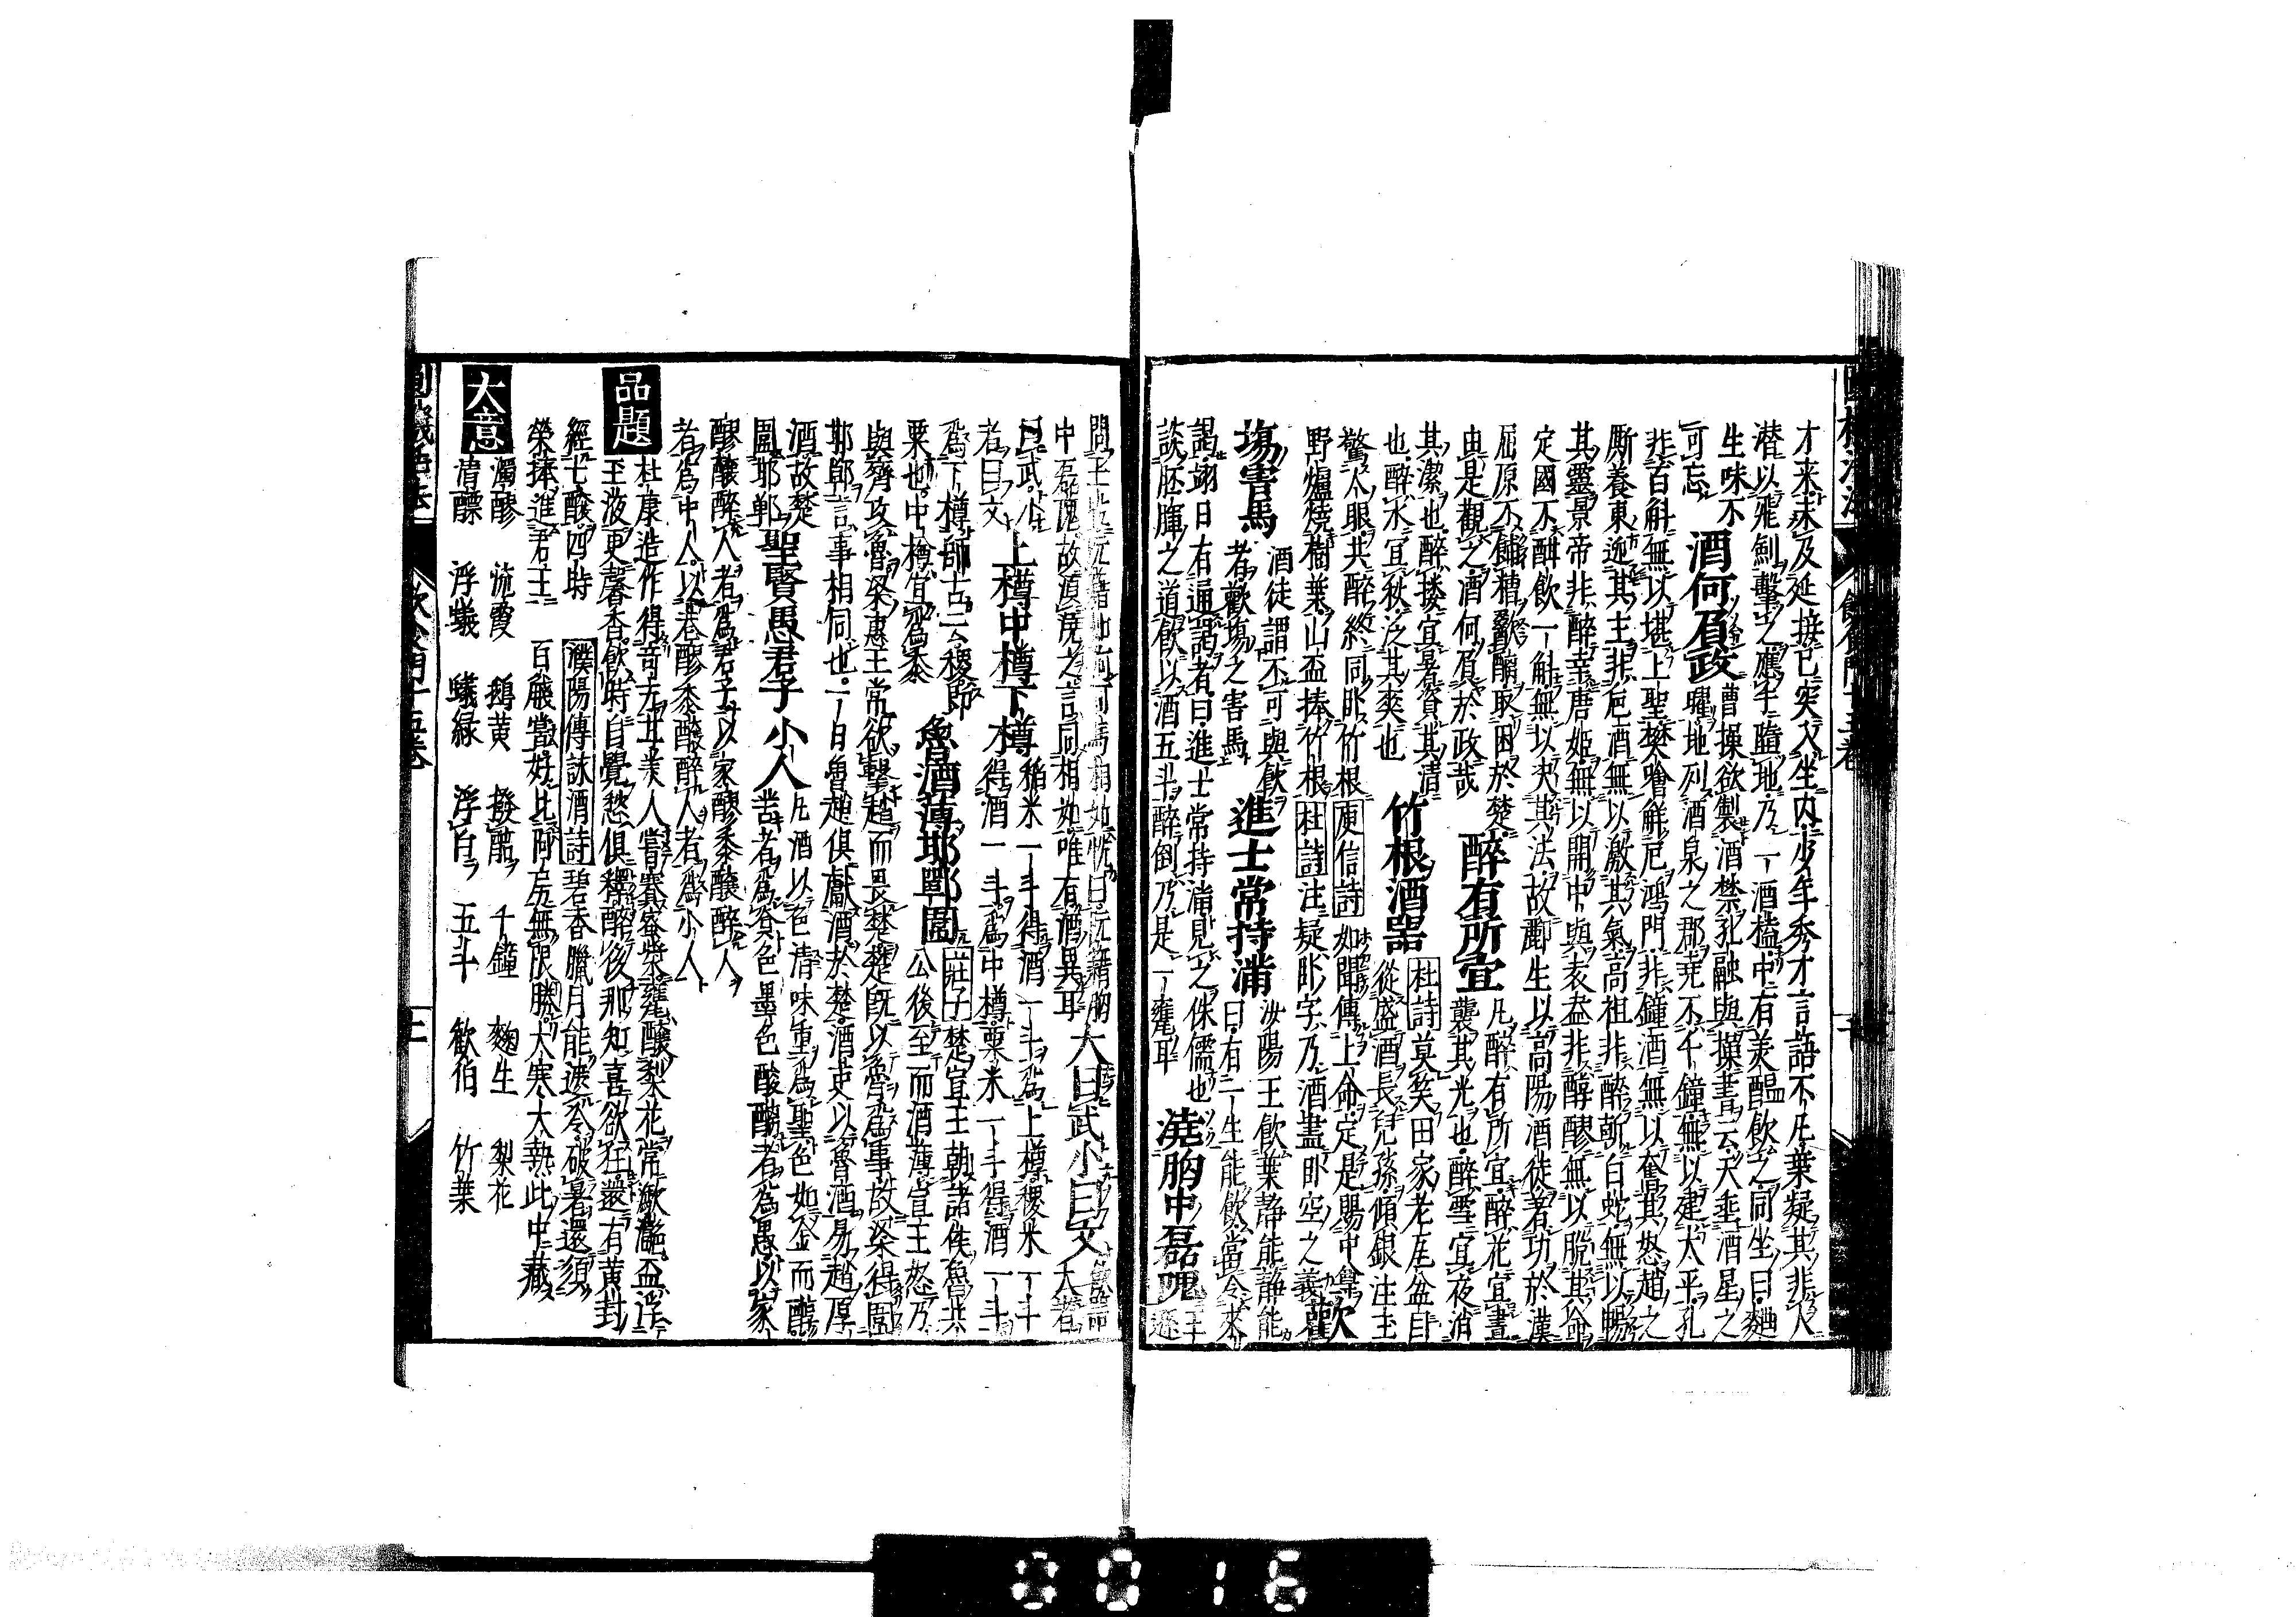 才来未及延接已突入坐内少年秀才言語不凡葉疑其非人
潜以飛劍擊之應手墮地乃一酒榼中有美醞飲之同坐曰麯
生味不
可忘
酒何負政
曹操欲製酒禁孔融與操書云天垂酒星之
曜地列酒泉之郡尭不千鐘無以建太平孔
非百斛無以堪上聖樊噲解厄鴻門非鐘酒無以奮其怒趙之
厮養東迎其主非卮酒無以激其氣高祖非醉斬白蛇無以暢
其靈景帝非醉幸唐姬無以開中興袁盎非醇醪無以脱其命
定國不酣飲一斛無以决其法故酈生以高陽酒徒著功於漢
屈原不餔糟歠醨取困於楚
由是觀之酒何負於政哉
醉有所宜
凡醉有所宜醉花宜晝
襲其光也醉雪宜夜消
其潔也醉楼宜暑資其清
也醉水宜秋泛其爽也
竹根酒器
杜詩莫笑田家老瓦盆自
從盛酒長兒孫傾銀注玉
驚人眼共醉終同卧竹根
庾信詩
如聞傳上命定是賜中
野爐燒樹葉山盃捧竹根
杜詩注疑卧字乃酒盡卧空之義
歡
塲害馬
酒徒謂不可與飲
者歡塲之害馬
進士常持滿
汝陽王飲葉静能静能
曰有一生能飲當令來
謁翊日有通謁者曰進士常持滿見之侏儒也
談胚腪之道飲以酒五斗醉倒乃是一甕耳
澆胸中磊磈
王
遜
中磊磈故須澆之言同相如唯有酒異耳
大曰武小曰文
大者
曰武小
者曰文
上樽中樽下樽
稲米一斗得酒一斗為上樽稷米一斗
得酒一斗為中樽粟米一斗得酒一斗
為下樽師古云稷即
粟也中樽宜為黍
魯酒薄耶鄲圍
莊子楚宣王朝諸侯魯共
公後至而酒薄宣王怒乃
與齊攻魯梁惠王常欲擊趙而畏楚楚既以魯為事故梁得圍
耶鄲言事相同也一曰魯趙俱獻酒於楚酒吏以魯酒易趙厚
酒故楚
圍耶鄲
聖賢愚君子小人
凡酒以色清味重為聖色如金而醇
苦者為賢色黑色酸醨者為愚以家
醪醸醉人者為君子以家醪黍醸醉人
者為中人以巷醪黍醸醉人者為小人
品題
杜康造作得奇方工美人嘗
玉液更馨香飲時自覺愁俱釋醉後那知喜欲狂還有黄封
經七醸四時
濮陽傳詠酒詩
碧香臘月能遮冷破暑還須
榮捧進君王
百醆當好比阿房無限勝大寒大熱此中藏
大意
濁醪 流霞 鵝黄 撥醅 千鐘 麴生 梨花
清醥 浮蟻 蟻緑 浮白 五斗 歡伯 竹葉
飲食門十五巻
0016